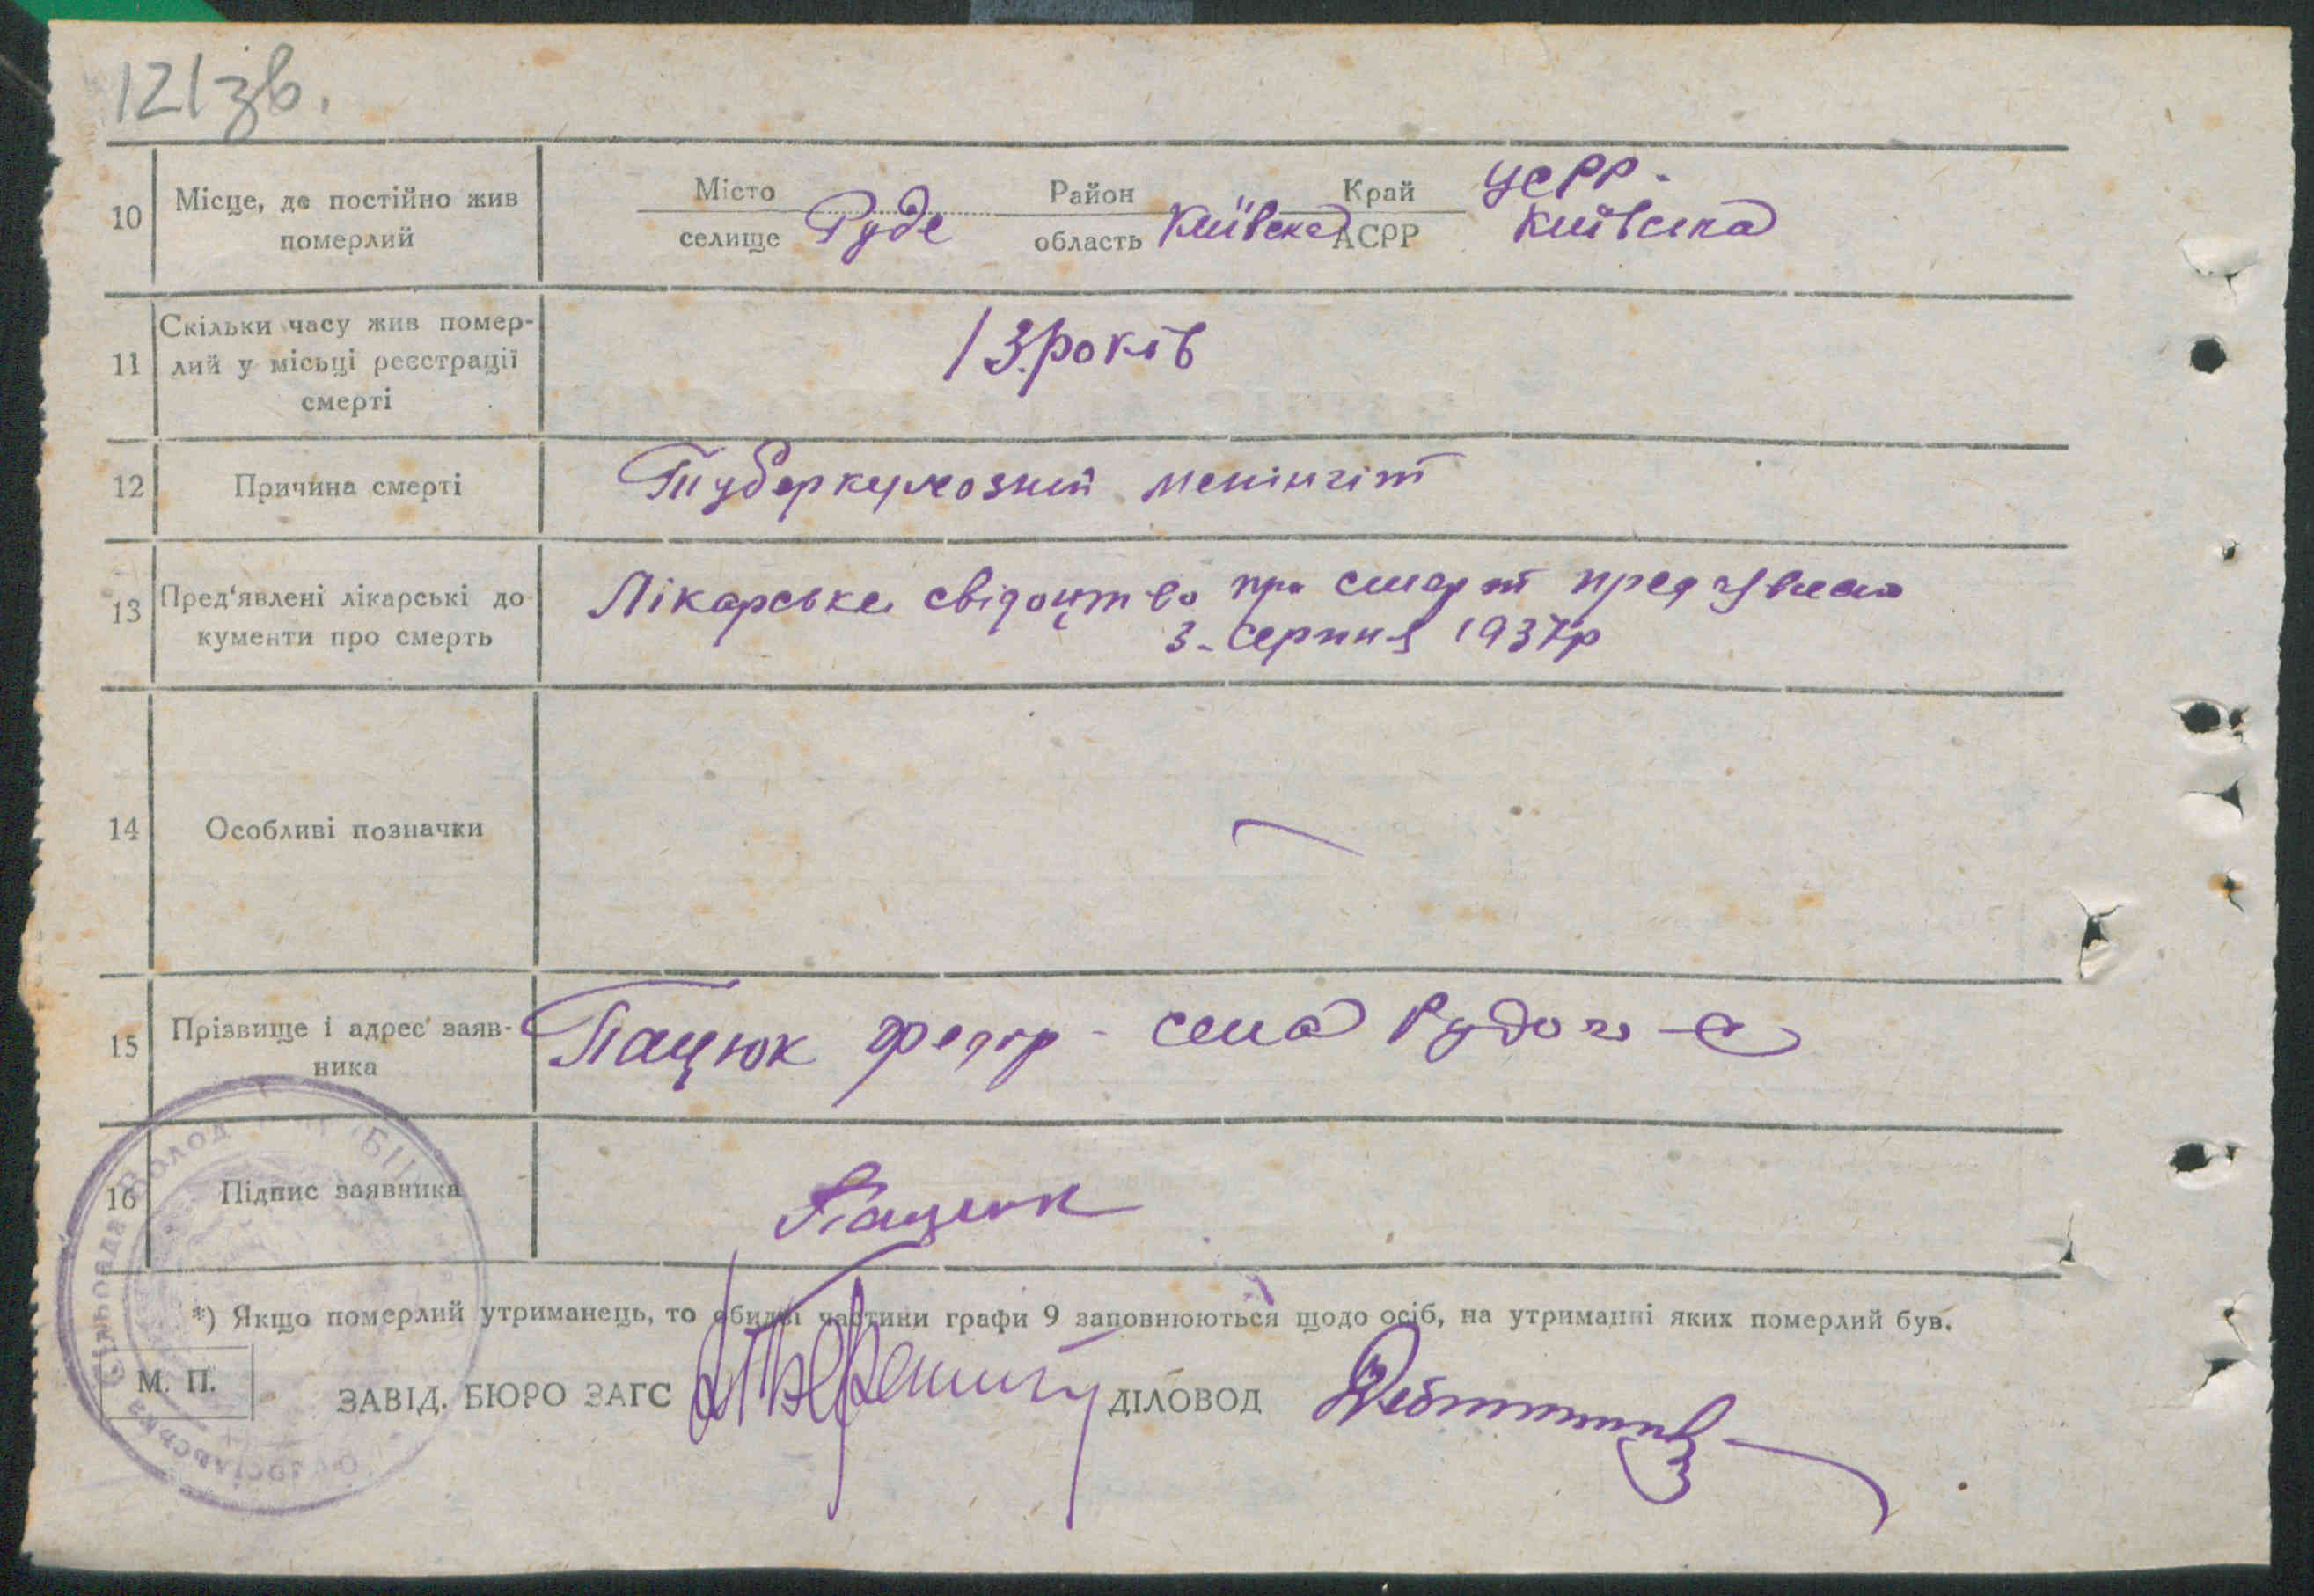 121зв.
10 Місце, де постійно жив померлий
Місто селище Руде Район область Київська Край АСРР УСРР. Київська
11 Скільки часу жив помер-
лий у місьці реєстрації
смерті
13 років
12 Причина смерті Туберкульозний менінгіт
13 Пред'явлені лікарські до
кументи про смерть
Лікарське свідоцтво про смерт
3. серпня 1937р
14 Особливі позначки
15 Прізвище і адрес заяв-
ника
Пацюк села Рудого
16 Підпис заявника Пацюк
*) Якщо померлий утриманець, то обидві частини графи 9 заповнюються щодо осіб, на утриманні яких померлий був.
М. П.
ЗАВІД. БЮРО ЗАГС ДІЛОВОД